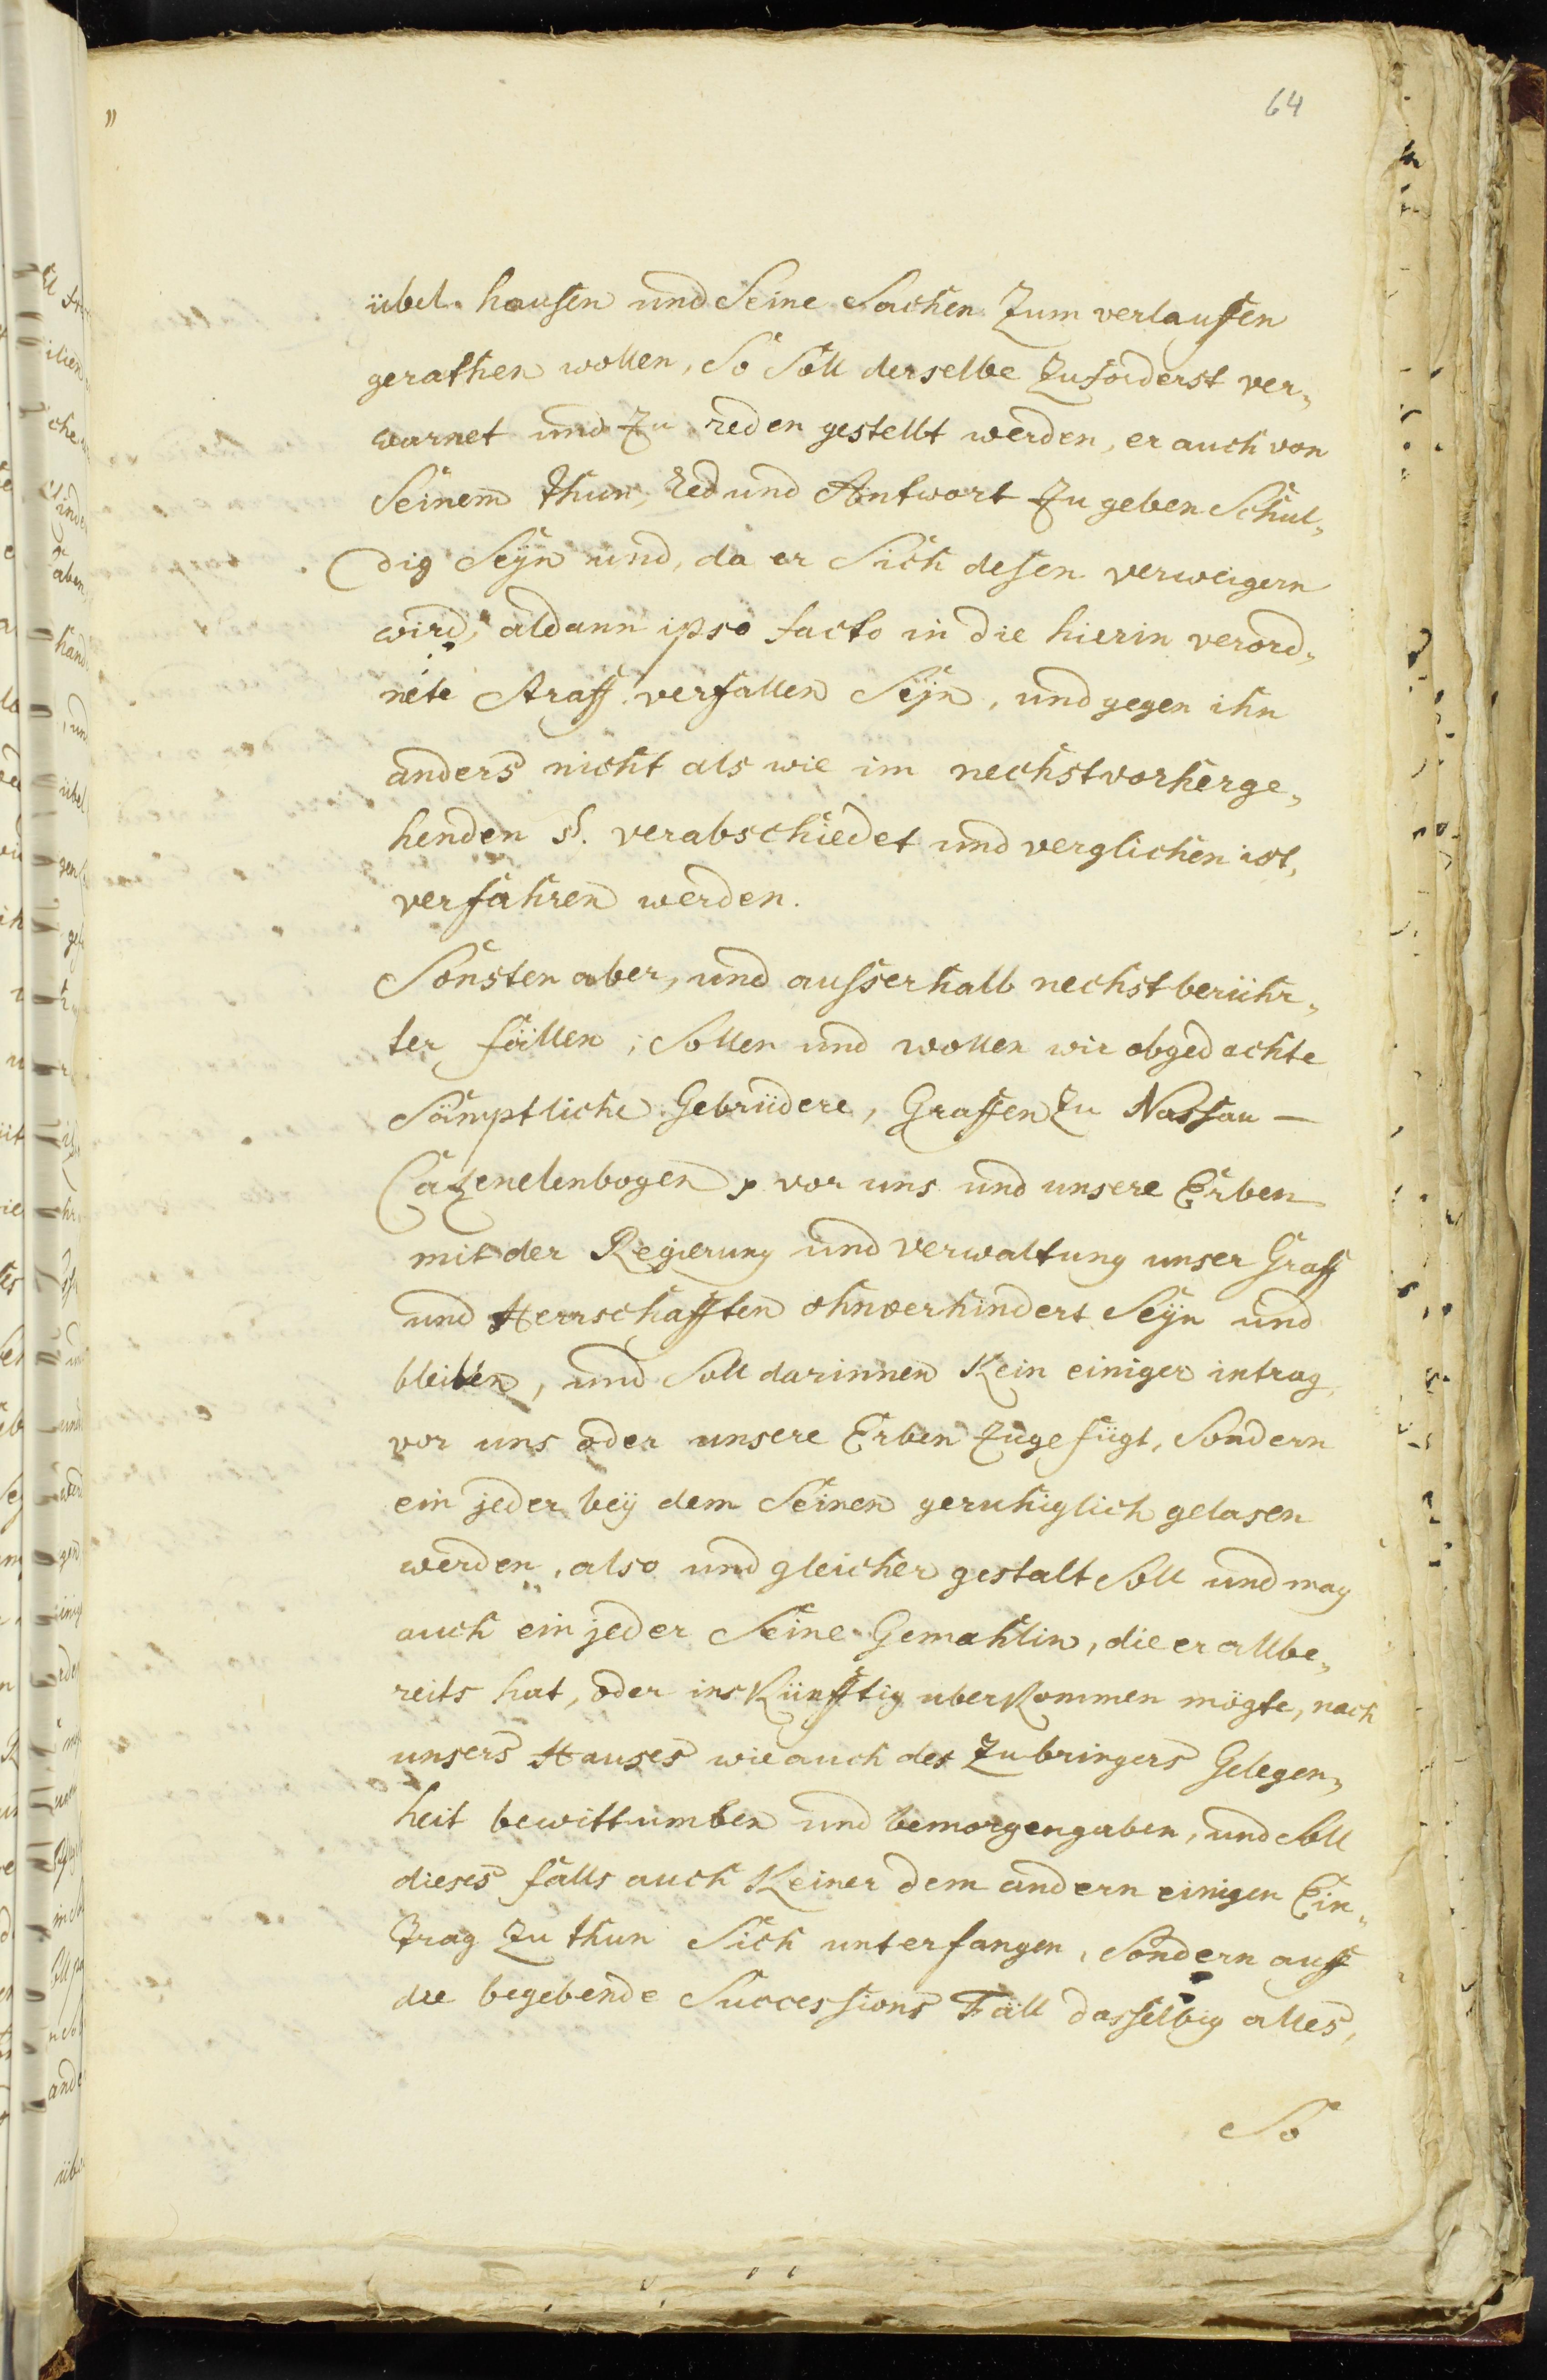 64
übel hausen und Seine Sachen Zum verlauffen
gerathen wollen, So Soll derselbe Zuforderst ver„
warnet und Zu reden gestelbt werden, er auch von
Seinem thun, red und Antwort Zu geben Schul„
dig Seyn und, da er Sich desen verweigern
wird, aldann ipso facto in die hierin verord„
nete Straff verfallen Seyn, und gegen ihn
anders nicht als wie im nechstvorherge„
henden §. verabschiedet und verglichen ist,
verfahren werden.
Sonsten aber, und ausserhalb nechst berühr„
ter fällen, Sollen und wollen wir obgedachte
Sämptliche Gebrüdere, Graffen Zu Nassau —
Catzenelenbogen vor uns und unsere Erben
mit der Regierung und verwaltung unser Graff
und Herrschafften ohnverhindert Seyn und
bleiben, und Soll darinnen Kein einiger intrag
vor uns oder unsere Erben Zugefügt, Sondern
ein jeder bey dem Seinen geruhiglich gelasen
werden, also und gleicher gestalt Soll und mag
auch ein jeder Seine Gemahlin, die er allbe„
reits hat, oder ins Künfftig uberkommen mögte, nach
unsers Hauses wie auch des Zubringers Gelegen„
heit bewittumben und bemorgengaben, und Soll
dieses falls auch Keiner dem andern einigen Ein„
trag Zu thun Sich unterfangen, Sondern auff
die begebende Successions Fäll dasselbig alles,
So